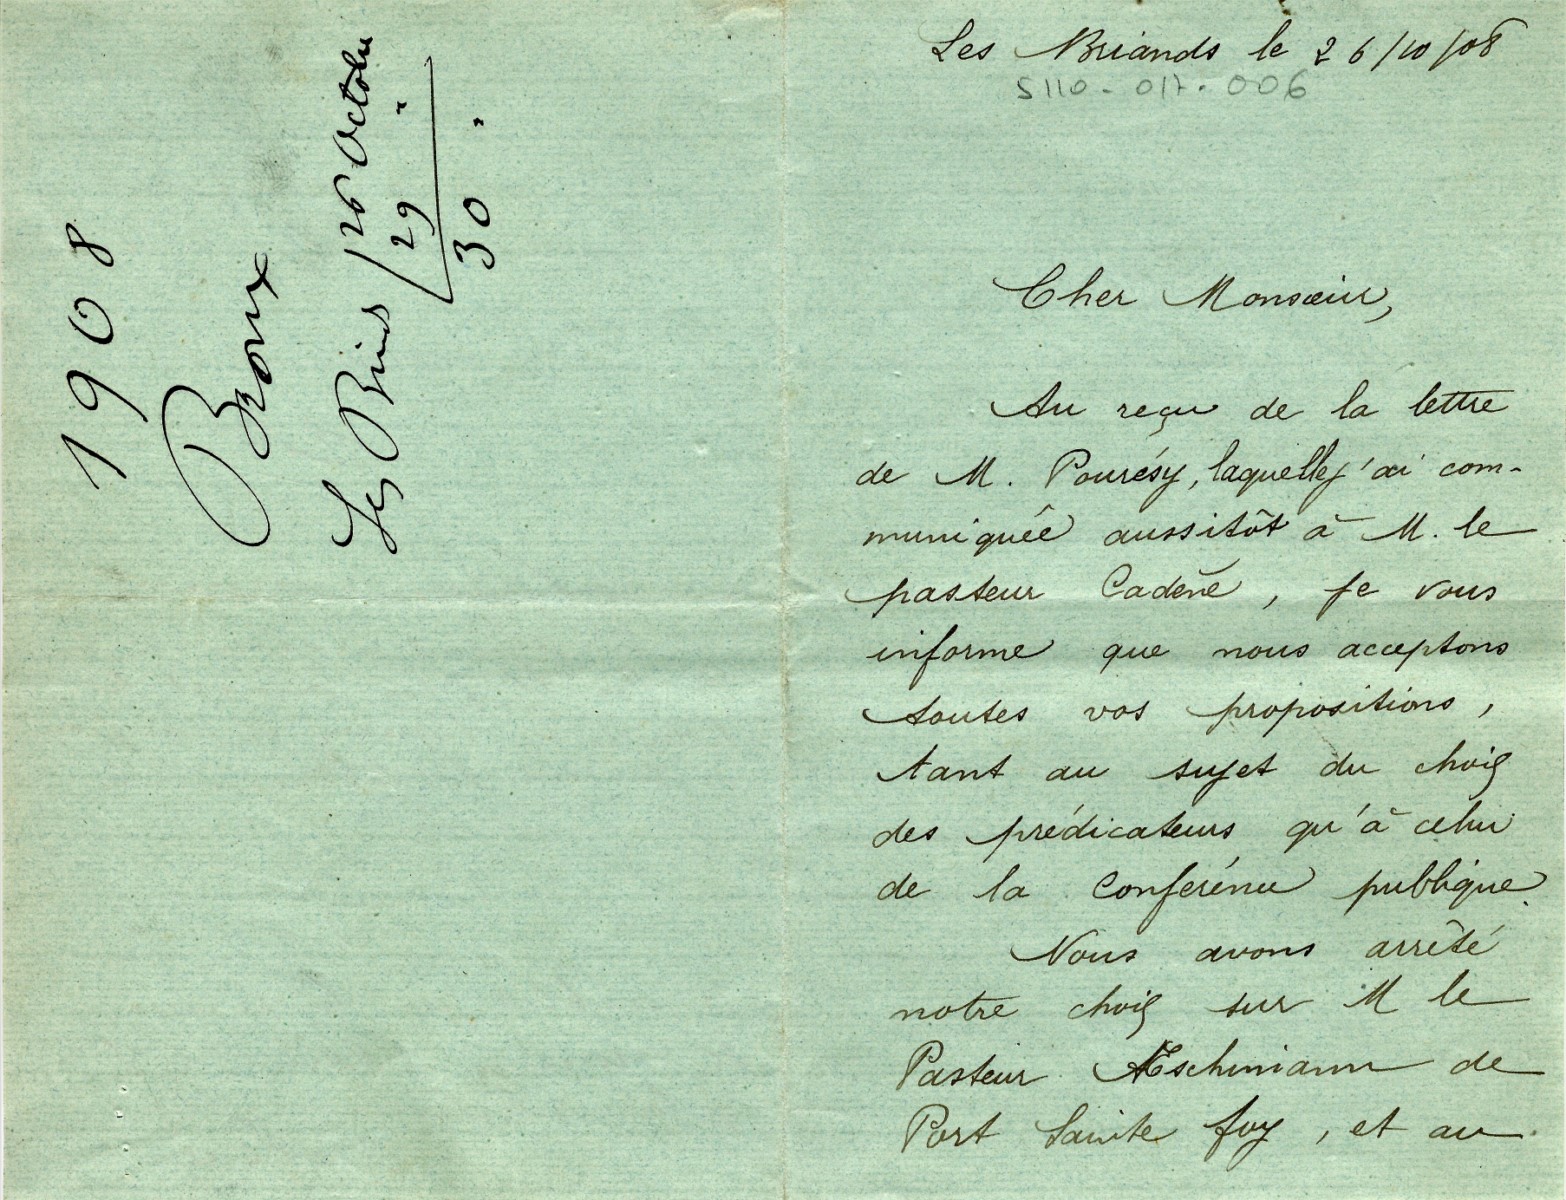 1908
Broux
Les Briands 26 Octobre
29 "
30 "
Les Briands le 26/10/08
5110-017-006
Cher Monsieur,
Au reçu de la lettre
de M. Pourésy, laquelle j'ai com-
muniquée aussitôt à M. le
pasteur Cadène, je vous
informe que nous acceptons
toutes vos propositions,
tant au sujet du choix
des prédicateurs qu'à celui
de la Conférence publique.
Nous avons arrêté
notre choix sur M le
Pasteur Æschimann de
Port Sainte Foy, et au